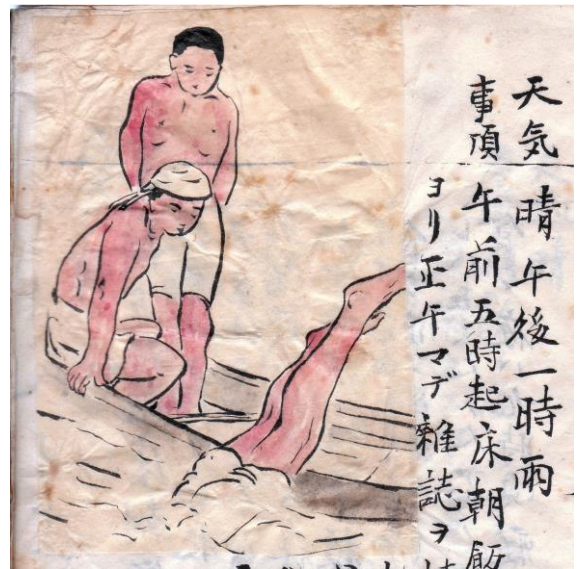 天気 晴午後一時雨
事項 午前五時起床朝飯
ヨリ正午マデ雑誌ヲ